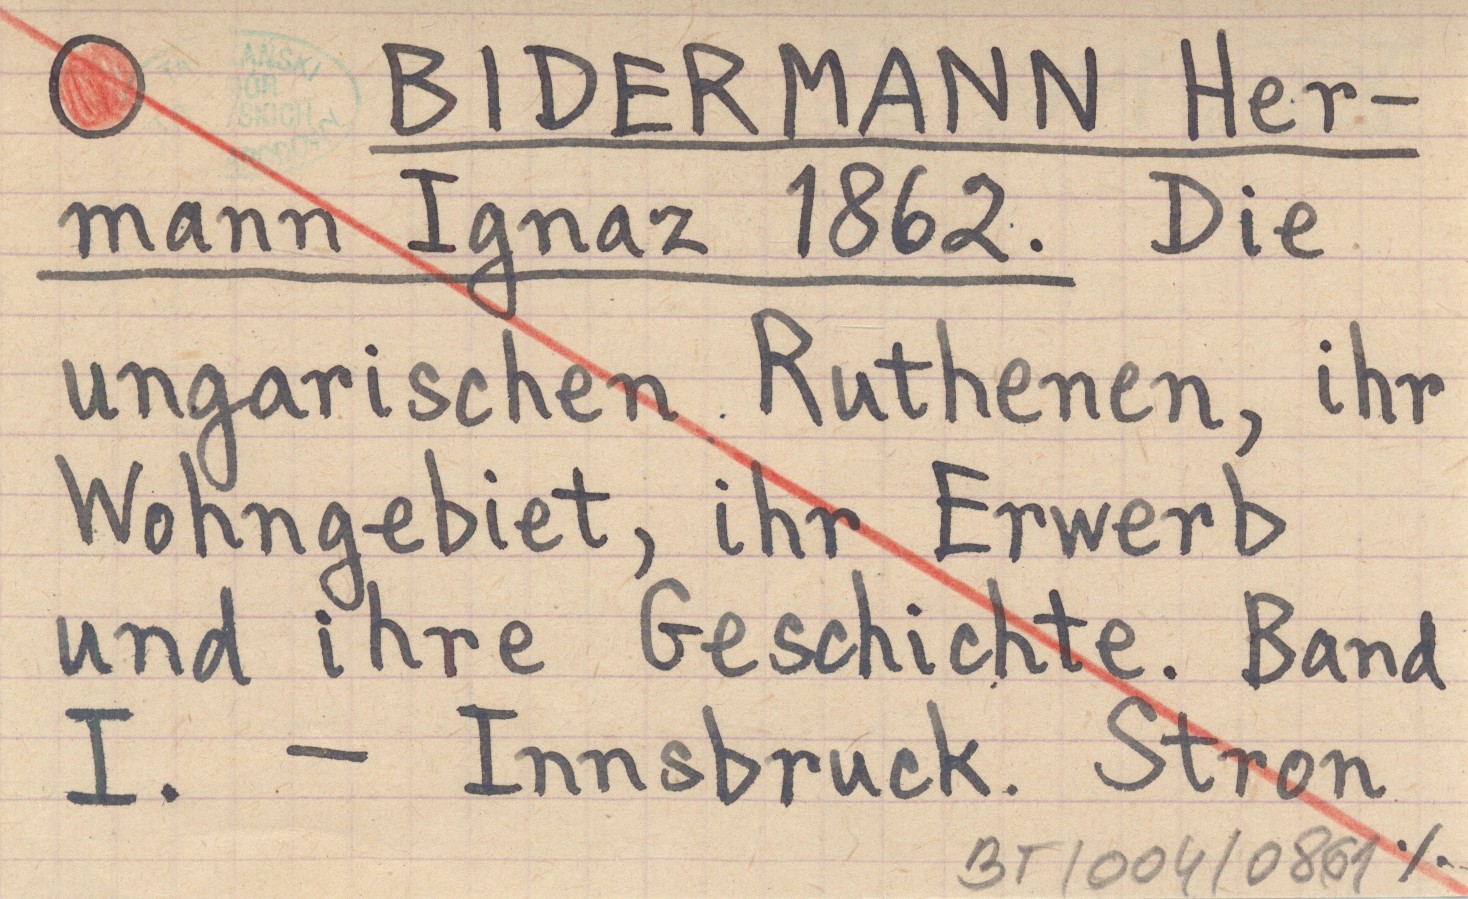 BIDERMANN Her-
mann Ignaz 1862. Die
ungarischen Ruthenen, ihr
Wohngebiet, ihr Erwerb
und ihre Geschichte. Band
I. – Innsbruck. Stron
BT/004/0861 ./.